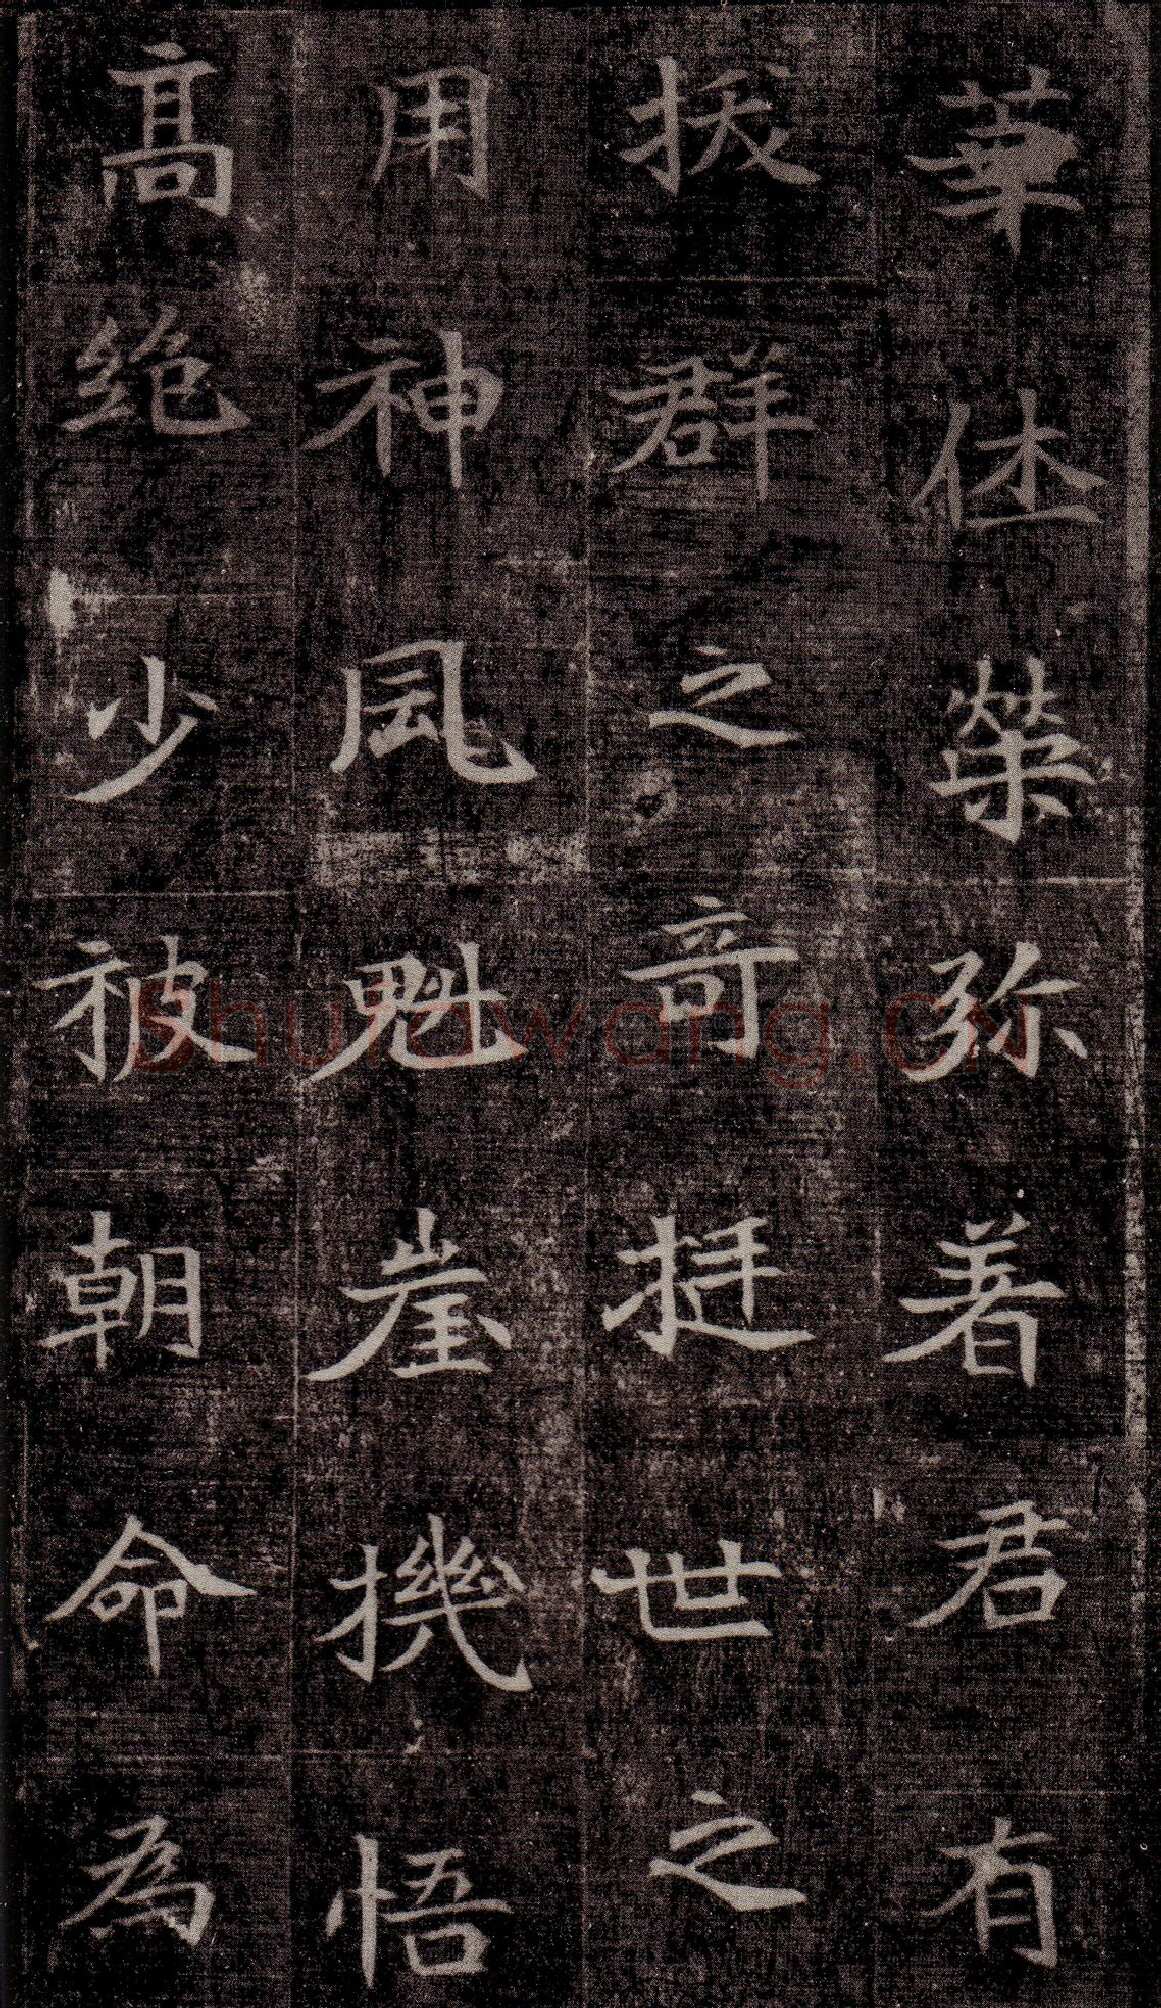 華休榮弥著君有
拔群之竒挺世之
用神風魁崖機悟
高絶少被朝命為
shufawang.cn